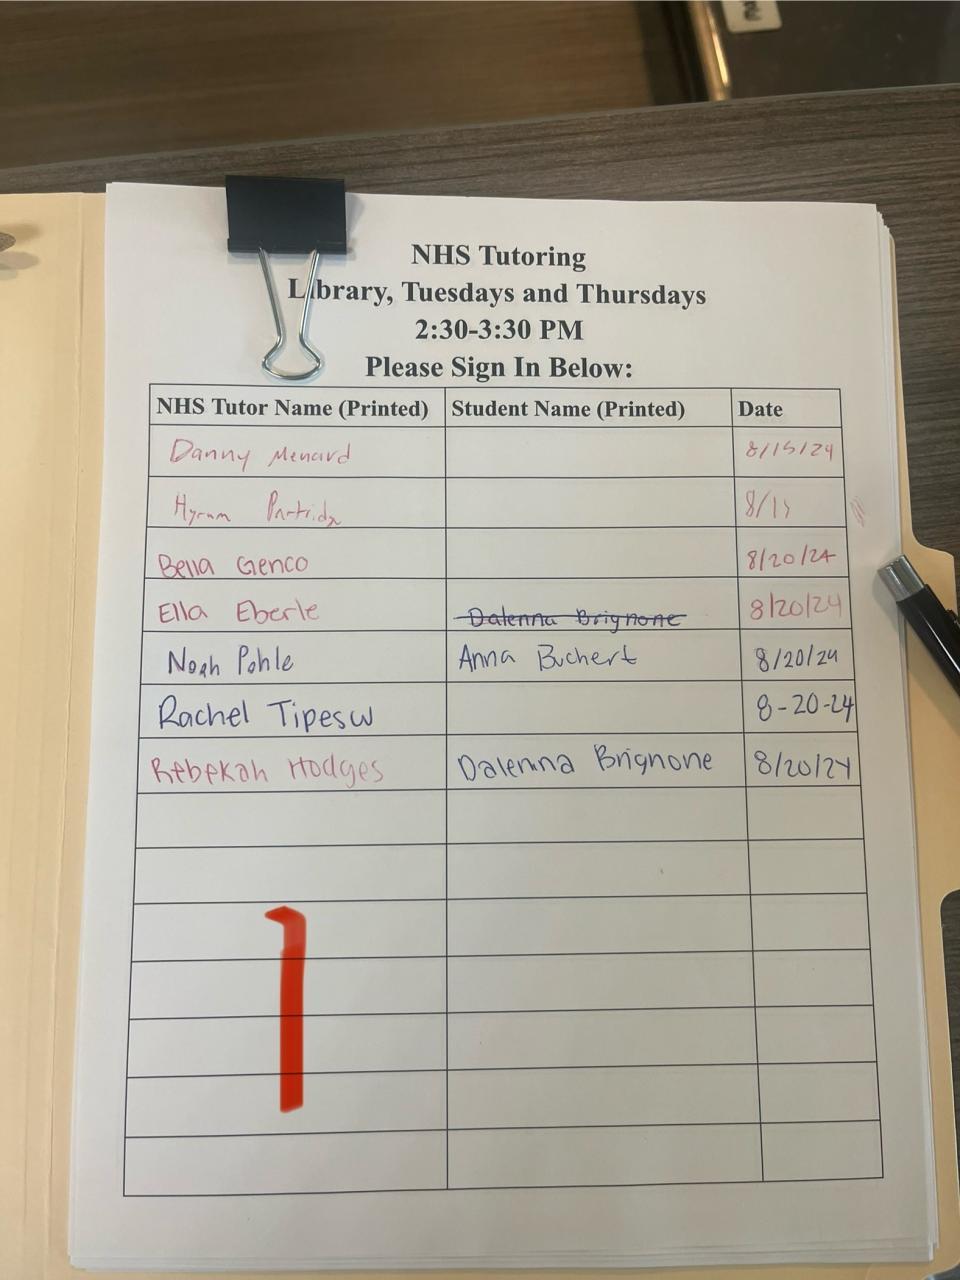 NHS Tutoring
Library, Tuesdays and Thursdays
2:30-3:30 PM
Please Sign In Below:
NHS Tutor Name (Printed) Student Name (Printed) Date
Danny Menard 8/15/24
Hyrum 8/15
Bella Genco 8/20/24
Ella Eberle Dalenna Brignone 8/20/24
Noah Pohle Anna Buchert 8/20/24
Rachel Tipesw 8-20-24
Rebekah Hodges Dalenna Brignone 8/20/24
1